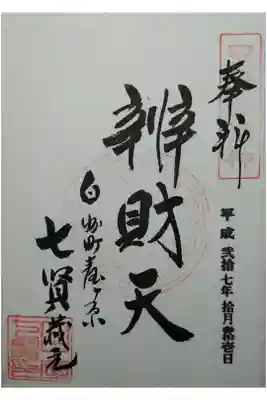 奉拝
辨財天
白州町臺ヶ原
七賢蔵元
平成 貳拾七年 拾月